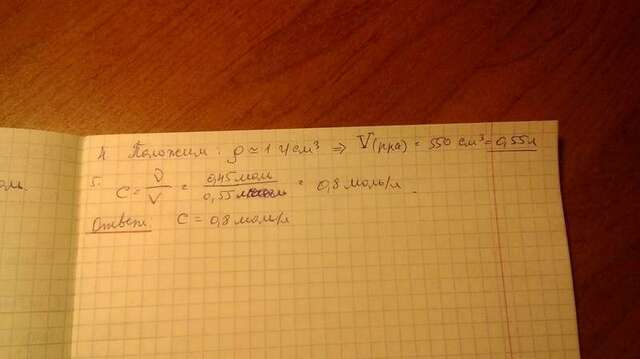 оль.
4. Положим: ρ ≃ 1 г/см³ ⇒ V(р-ра) = 550 см³ = 0,55л
5. C = ν/V = 0,45моль/0,55л = 0,8 моль/л.
Ответ: C = 0,8 моль/л